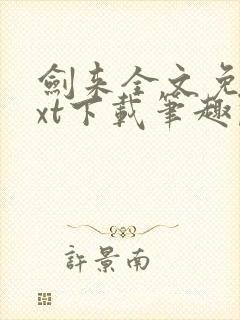 劍来全文免
xt下載筆趣
許景南